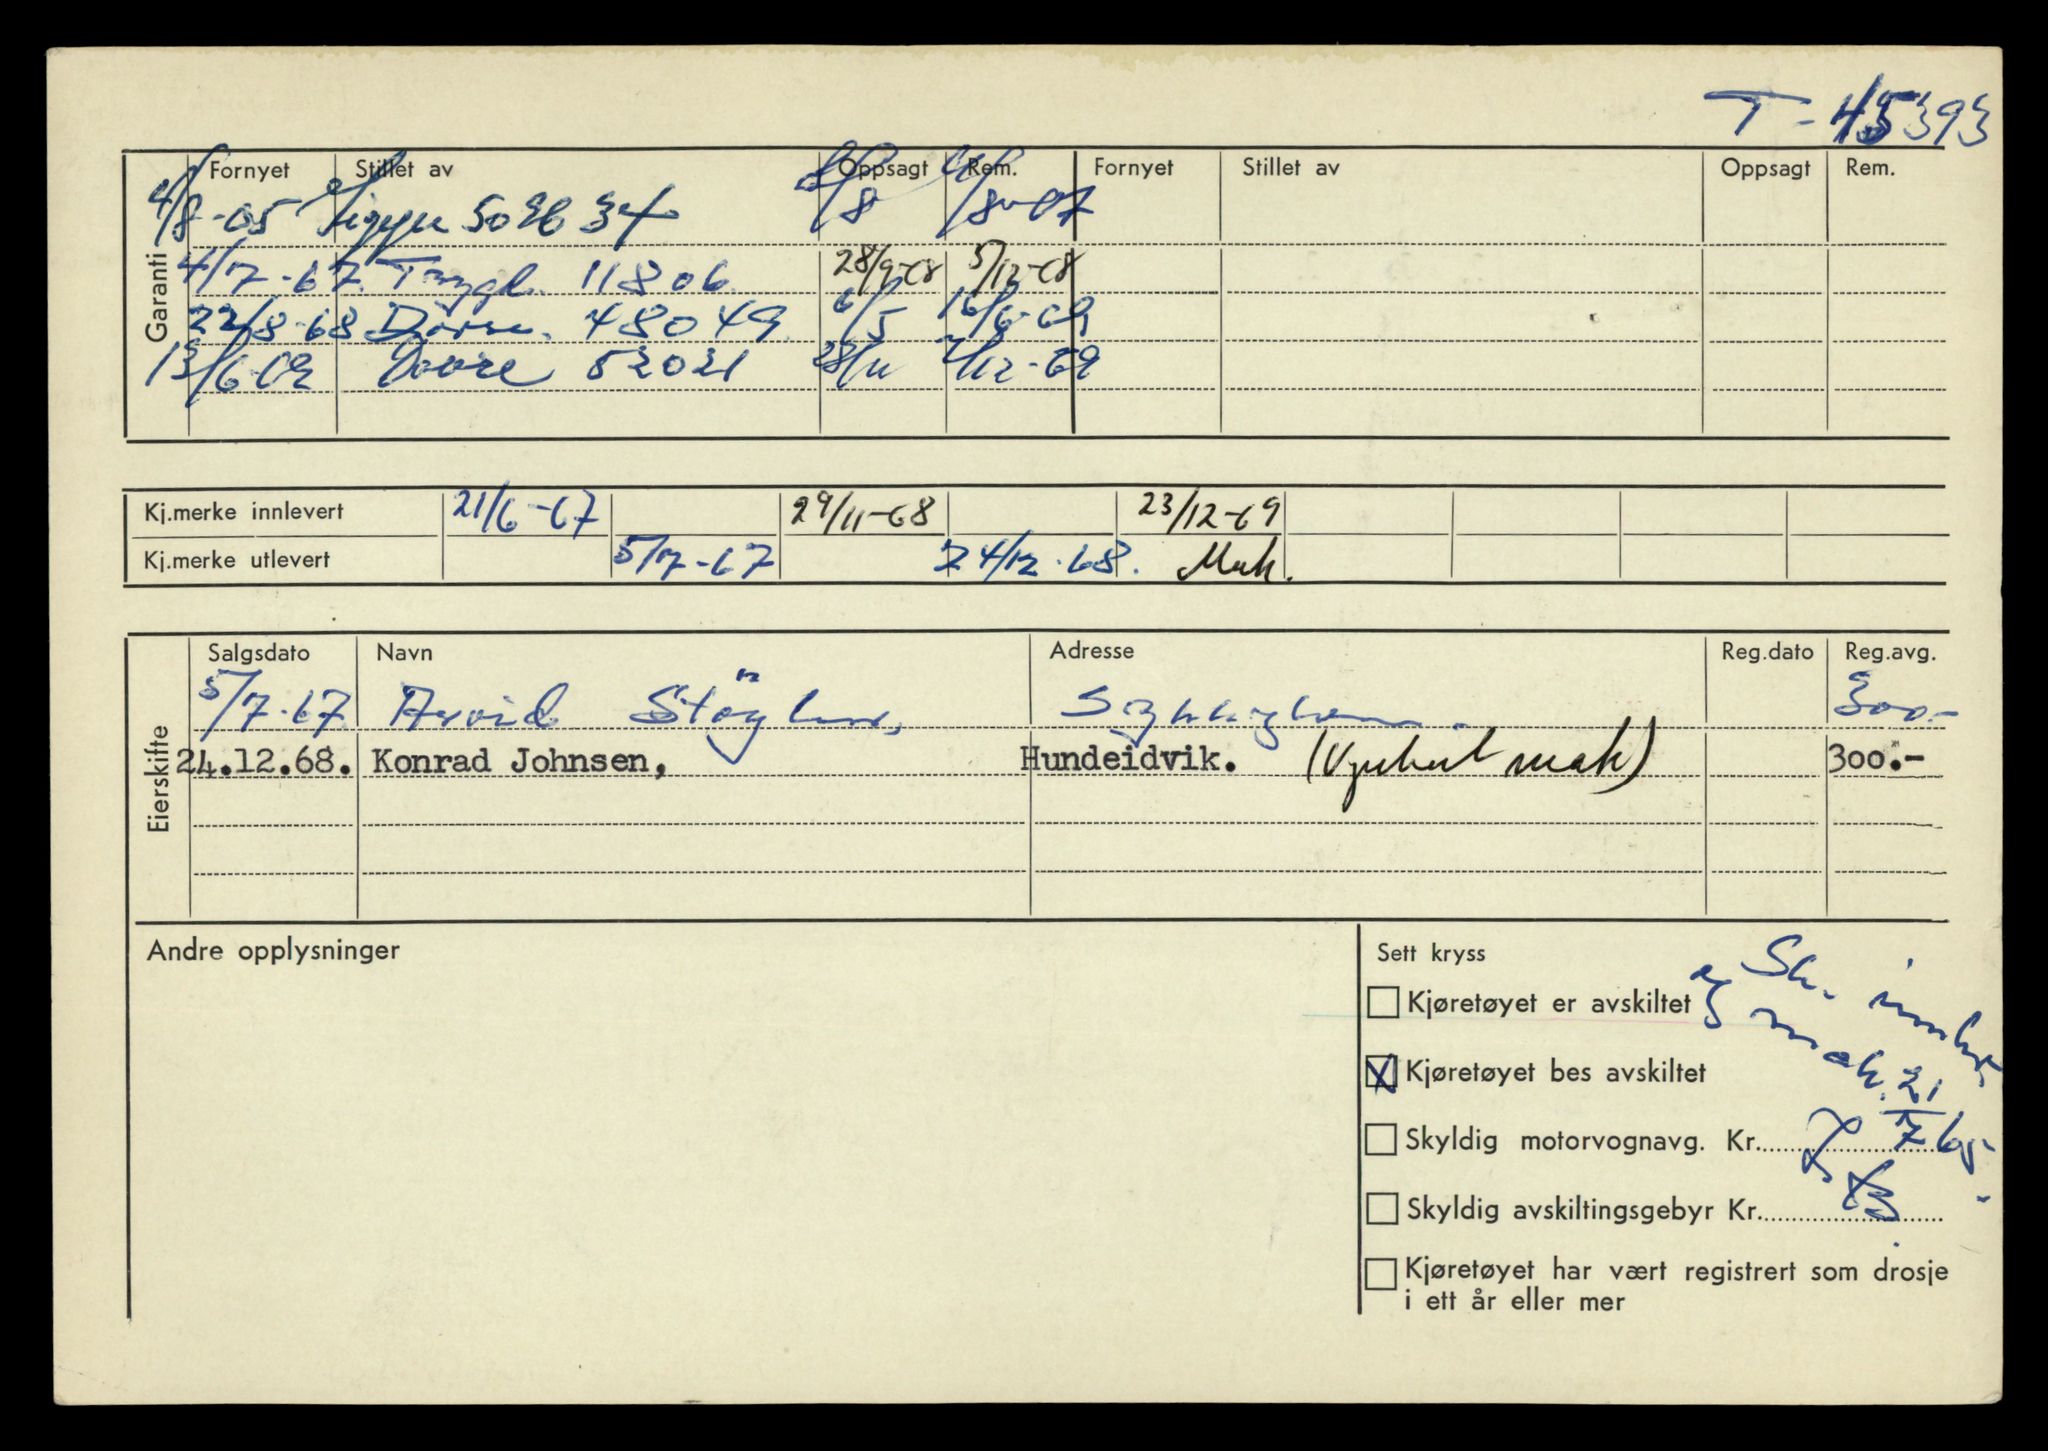 T-45393
Garanti
Fornyet Stillet av Oppsagt Rem. Fornyet Stillet av Oppsagt Rem.
4/8-65
4/7-67 Trygd. 11806 28/9-68 5/12-68
22/8-68 48049 6/5 16/6-69
13/6-69 Dovre 52021 28/11 2/12-69
Kj.merke innlevert 21/6-67 29/11-68 23/12-69
Kj.merke utlevert 5/7-67 24/12-68. Mak.
Eierskifte
Salgsdato Navn Adresse Reg.dato Reg.avg.
5/7-67 Arvid 300.-
24.12.68. Konrad Johnsen, Hundeidvik. mak) 300.-
Andre opplysninger
Sett kryss
Sk. innlev.
Kjøretøyet er avskiltet
og mak. 21/7 65.
X Kjøretøyet bes avskiltet
Skyldig motorvognavg. Kr.
Skyldig avskiltingsgebyr Kr.
Kjøretøyet har vært registrert som drosje
i ett år eller mer